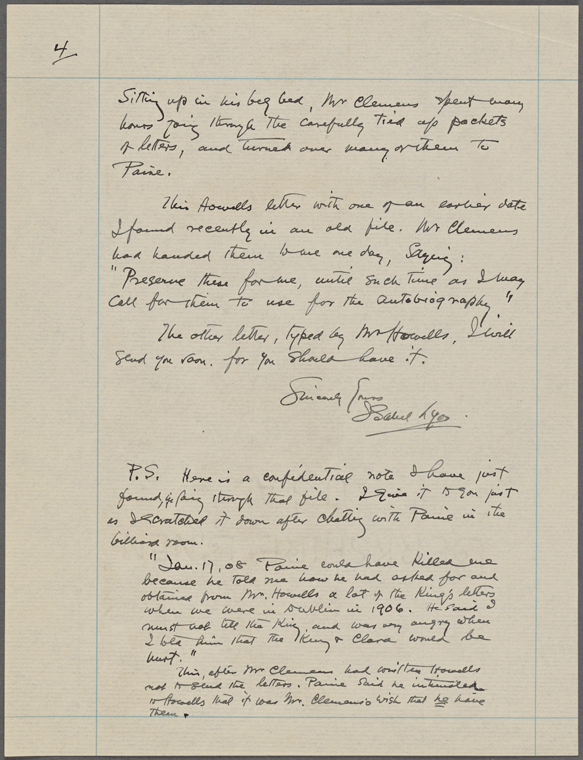 4
Sitting up in his big bed, Mr Clemens spent many
hours going through the carefully tied up packets
of letters, and turned over many of them to
Paine.
This Howells letter with one of an earlier date
I found recently in an old file. Mr Clemens
had handed them to me one day, saying:
"Preserve these for me, until such time as I may
call for them to use for the autobiography"
The other letter, typed by Mr Howells, I will
send you soon. for you should have it.
Sincerely Yours
Isabel Lyon.
P.S. Here is a confidential note I have just
found, going through that file. I give it to you just
as I scratched it down after chatting with Paine in the
billiard room.
"Jan. 17, 08 Paine could have killed me
because he told me how he had asked for and
obtained from Mr. Howells a lot of the King's letters
when we were in Dublin in 1906. He said I
must not tell the King, and was very angry when
I told him that the King & Clara would be
hurt."
This, after Mr Clemens had written Howells
not to send the letters. Paine said he intimated
to Howells that it was Mr. Clemens's wish that he have
them.